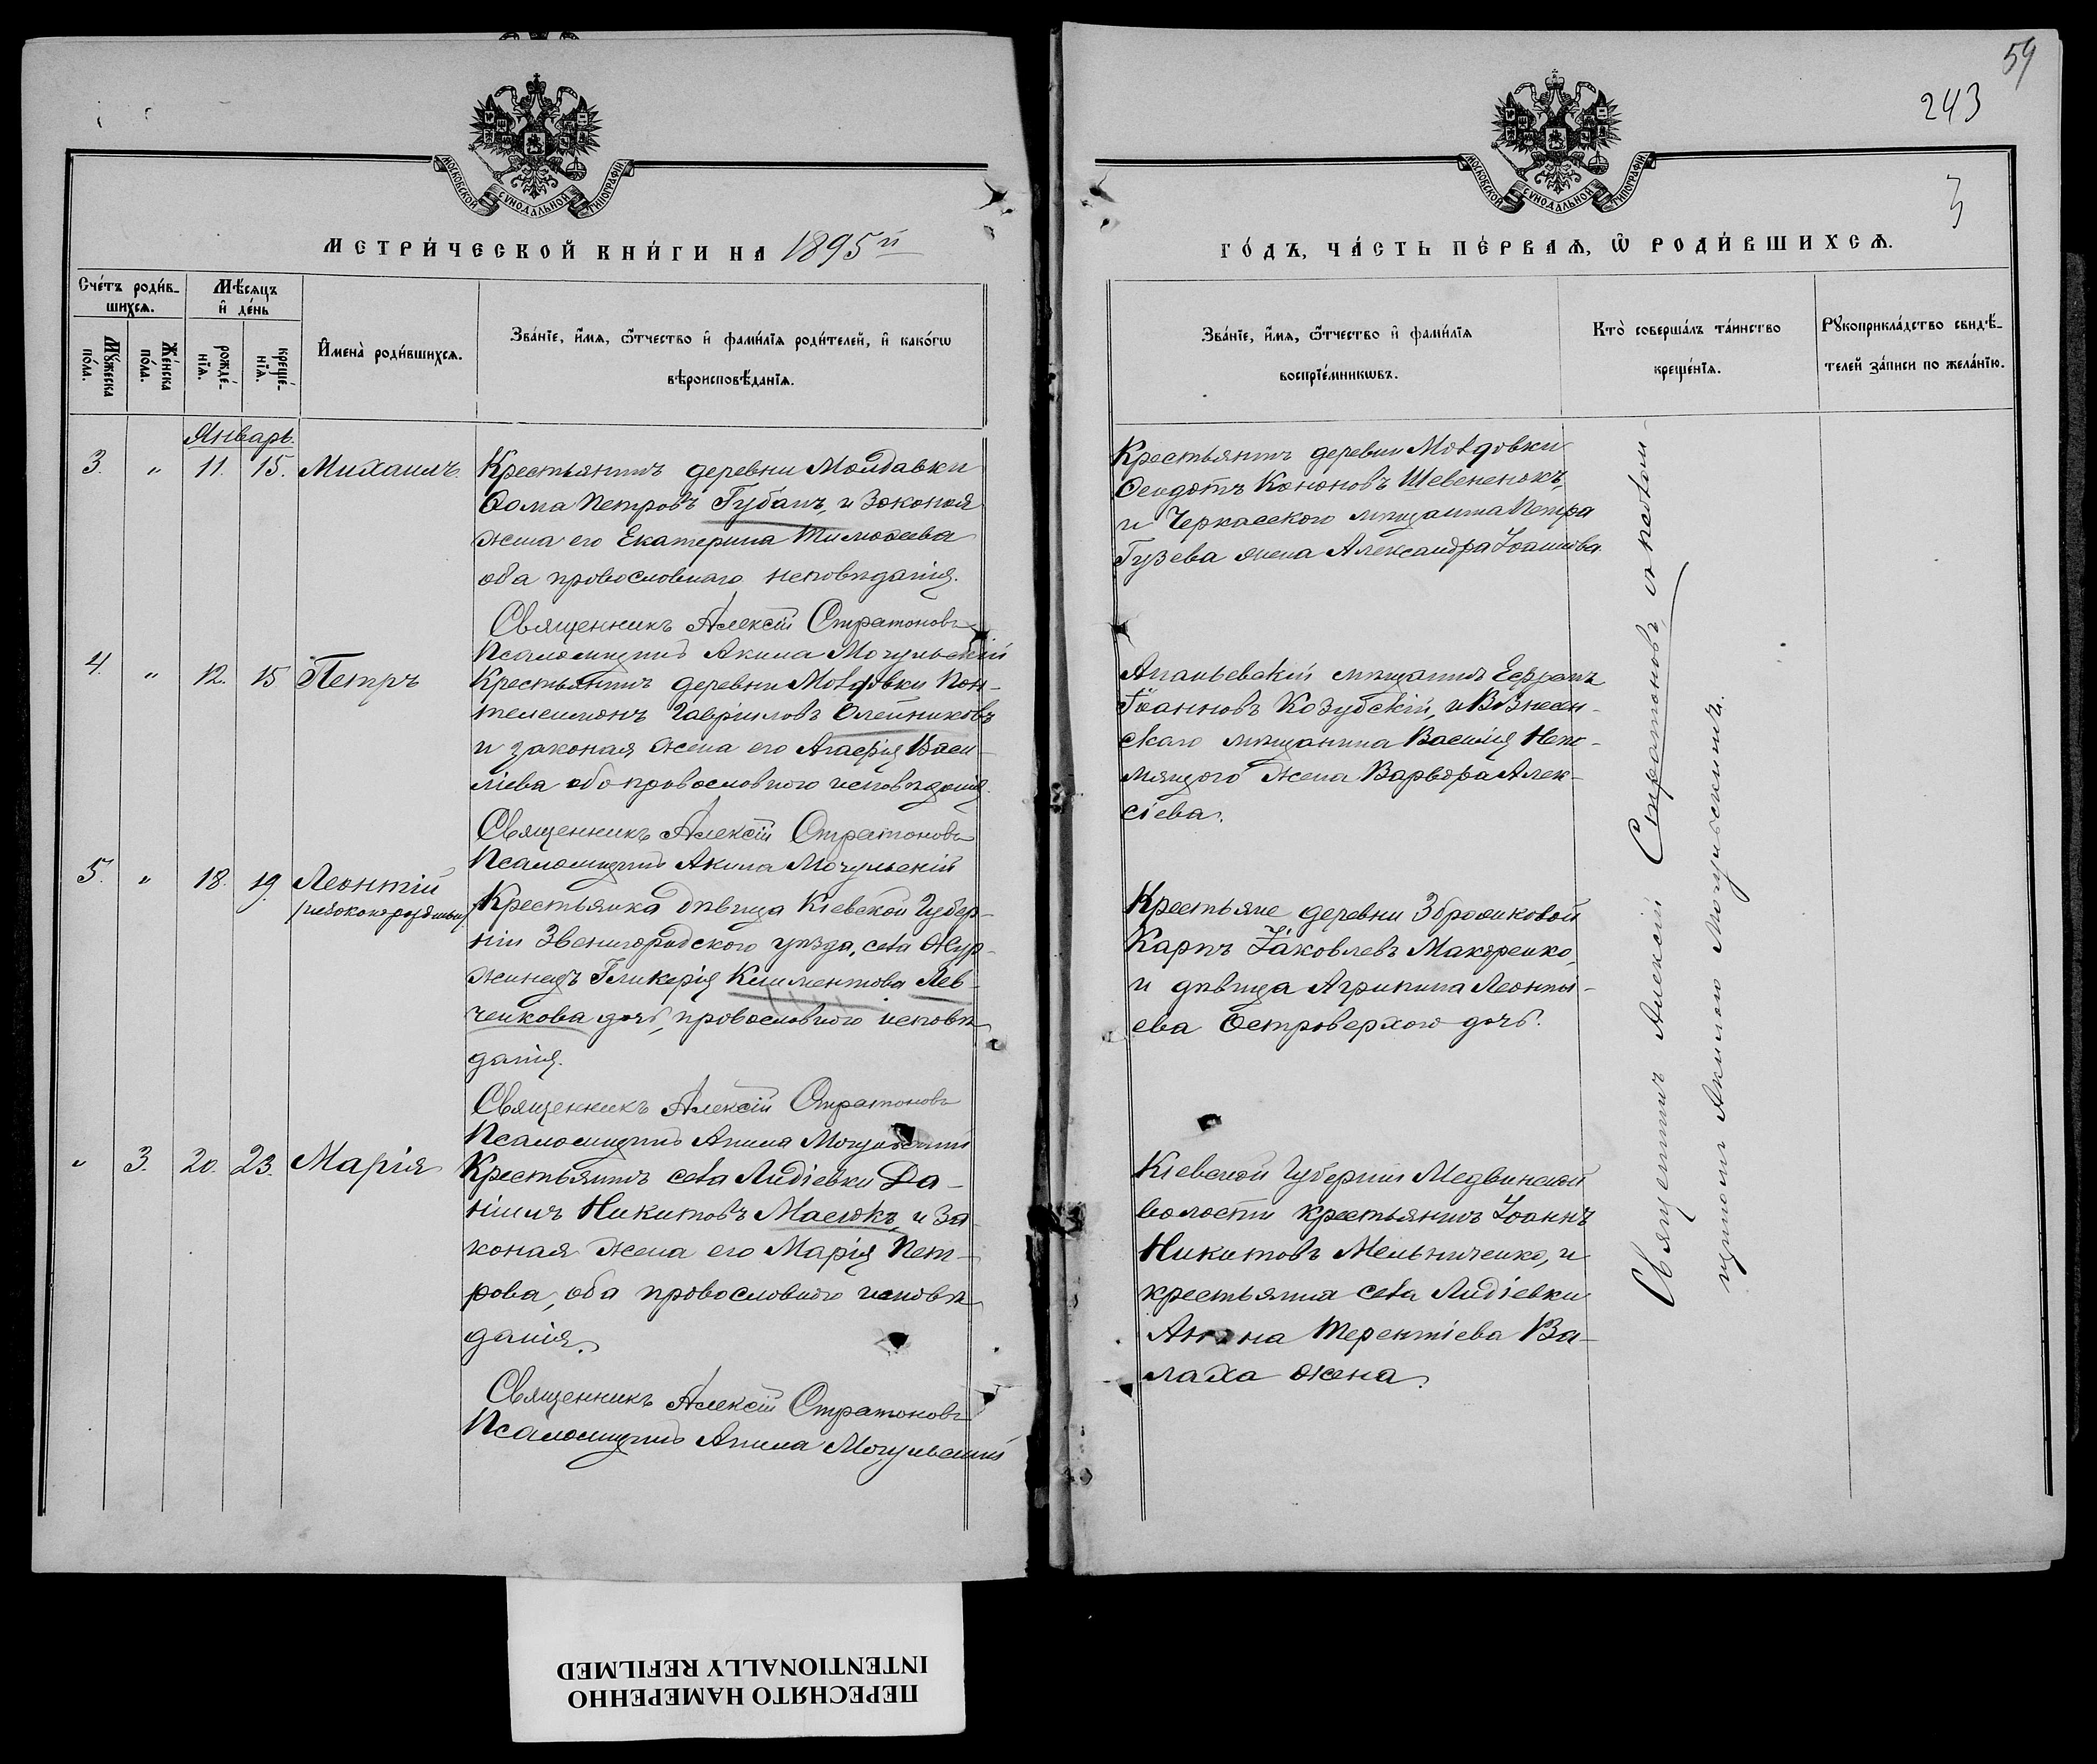 59
243
3
МОСКОВСКОЙ СѴНОДАЛЬНОЙ ТИПОГРАФІИ
МЕТРИ́ЧЕСКОЙ КНИ́ГИ НА 1895й
Сче́тъ роди́в-
шихсѧ.
Мѣ́сѧцъ
и҆ де́нь
Мꙋ́жеска
по́ла.
Же́нска
по́ла.
рожде́-
нїѧ.
креще́-
нїѧ.
И҆мена̀ роди́вшихсѧ.
Зва́нїе, и҆́мѧ, ѻ҆́тчество и҆ фами́лїѧ роди́телей, и҆ како́гѡ
вѣроисповѣ́данїѧ.
Январь.
3. " 11. 15. Михаилъ.
Крестьянинъ деревни Молдавки
Ѳома Петровъ Губанъ, и законая
жена его Екатерина Тимоѳеева
оба православнаго исповѣданія.
Священникъ Алексій Стратоновъ
Псаломщикъ Акила Могульскій
4. " 12. 15 Петръ
Крестьянинъ деревни Молдовки Пан-
телеимонъ Гавріиловъ Олейниковъ
и законая жена его Агаѳія Васи-
ліева оба православного исповѣданія.
Священникъ Алексій Стратоновъ
Псаломщикъ Акила Могульскій
5. " 18. 19. Леонтій
/незаконорожденный/
Крестьянка дѣвица Кіевской Губер-
ніи Звенигородского уѣзда, села Жур-
жинецъ Гликерія Климентова Лев-
ченкова дочь, православного исповѣ-
данія.
Священникъ Алексій Стратоновъ
Псаломщикъ Акила Могульскій
" 3. 20. 23. Марія
Крестьянинъ села Лидіевки Да-
ніилъ Никитовъ Маслюкъ, и за-
коная жена его Марія Пет-
рова, оба православного исповѣ-
данія.
Священникъ Алексій Стратоновъ
Псаломщикъ Акила Могульскій
МОСКОВСКОЙ СѴНОДАЛЬНОЙ ТИПОГРАФІИ
ГО́ДЪ, ЧА́СТЬ ПЕ́РВАѦ, Ѽ РОДИ́ВШИХСѦ.
Зва́нїе, и҆́мѧ, ѻ҆́тчество и҆ фами́лїѧ
воспрїе́мникѡвъ.
Кто̀ соверша́лъ та́инство
креще́нїѧ.
Рꙋкоприкла́дство свидѣ́-
телей за́писи по жела́нїю.
Крестьянинъ деревни Молдовки
Ѳеодотъ Кононовъ Шевененокъ,
и Черкасского мѣщанина Петра
Гузева жена Александра Іоаннова.
Ананьевскій мѣщанинъ
Іоанновъ Козубскій, и Вознесен-
скаго мѣщанина Василія
жена Варвара Алек-
сіева.
Крестьяне деревни Зброшковой
Карпъ Іаковлевъ Макаренко,
и дѣвица Агрипина Леонті-
ева Островерхого дочь.
Кіевской Губерніи Медвинской
волости крестьянинъ Іоаннъ
Никитовъ Мельниченко, и
крестьянка села Лидіевки
Анна Терентіева Ва-
лаха жена.
Священникъ Алексій Стратоновъ, съ псалом-
щикомъ Акилою Могульскимъ.
ПЕРЕСНЯТО НАМЕРЕННО
INTENTIONALLY REFILMED